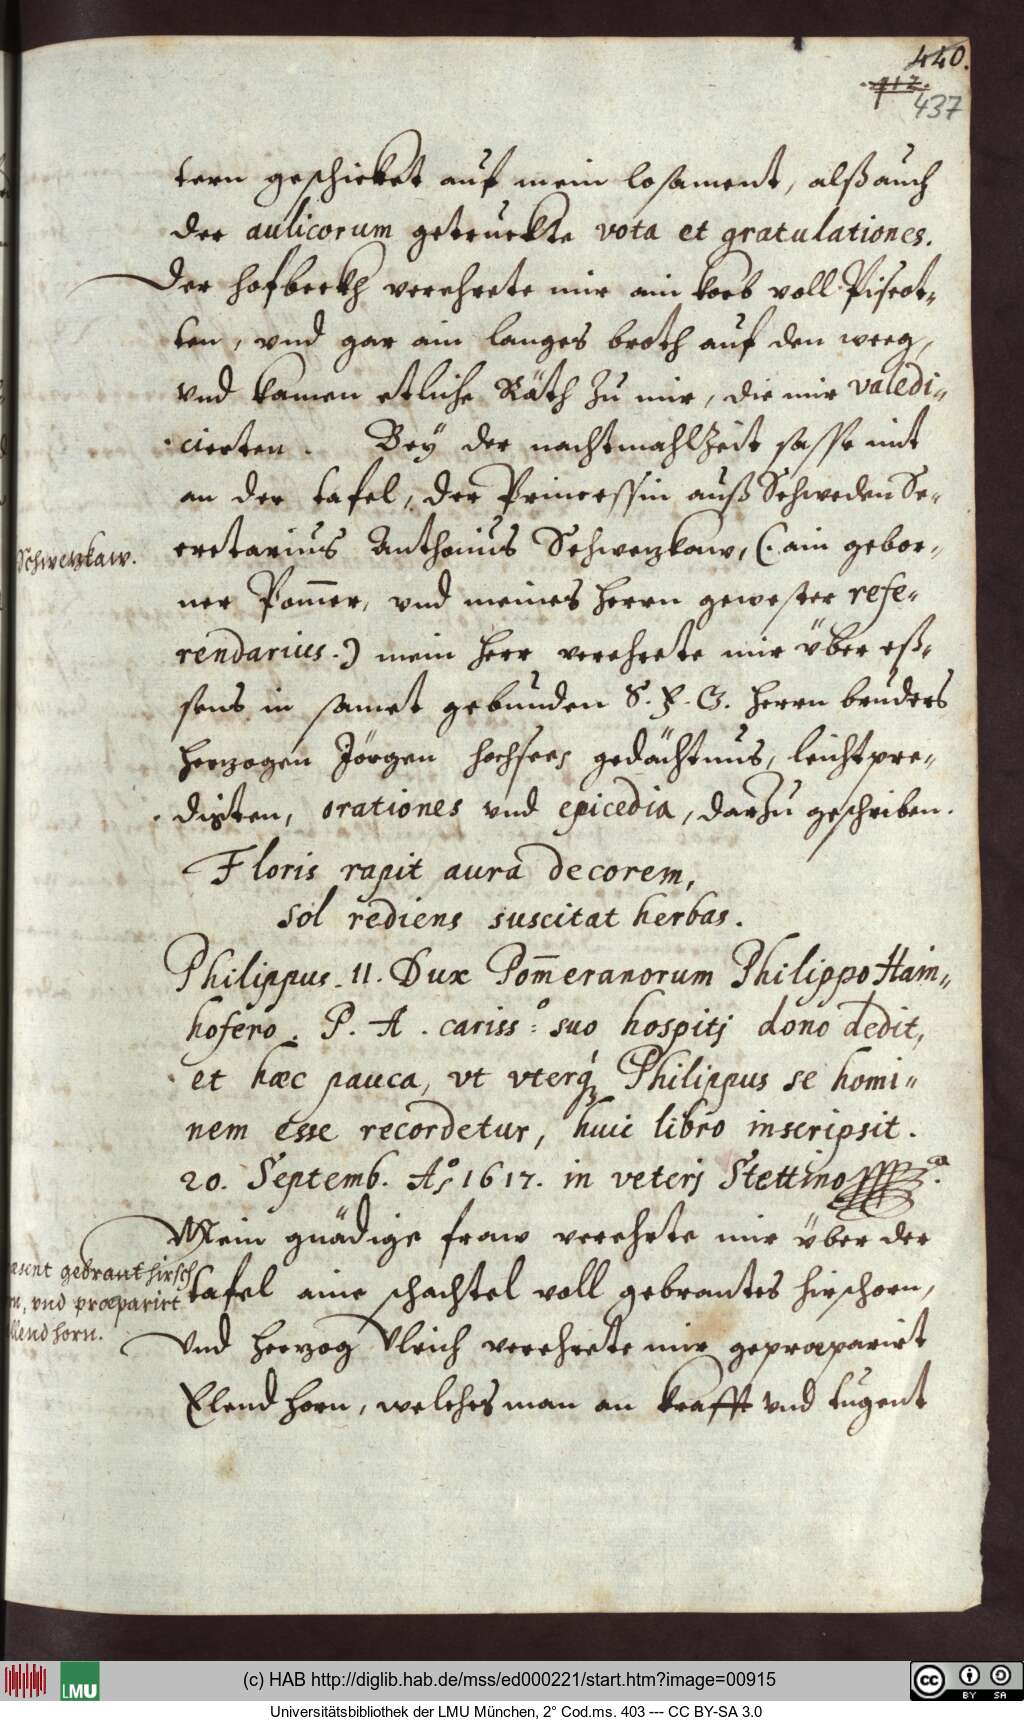 440.
437
tern geschicket auf mein losament, alß auch
der aulicorum getruckte vota et gratulationes.
Der hofbeckh verehrete mir ain korb voll Piscot-
ten, vnd gar ain langes broth auf den weeg,
vnd kamen etliche Räth zu mir, die mir valedi-
cierten. Bey der nachtmahlzeit sasse mit
an der tafel, der Princessin auß Schweden Se-
cretarius Anthonius Schwenzkaw, (. ain gebor-
Schwenzkaw.
ner Pom̄er, vnd meines herrn gewester refe-
rendarius.) mein herr verehrete mir über eß-
sens in samet gebunden S. F. G. herrn bruders
herzogen Jörgen hochsees gedächtnus, leichtpre-
digten, orationes vnd epicedia, darzu geschriben.
Floris rapit aura decorem,
sol rediens suscitat herbas.
Philippus. II. Dux Pom̄eranorum Philippo Hain-
hofero. P. A. cariss:º suo hospitj dono dedit,
et hæc pauca, vt vterq́ꝫ Philippus se homi-
nem esse recordetur, huic libro inscripsit.
20. Septemb. Aº 1617. in veterj Stettino
Mein gnädige fraw verehrte mir über der
tafel aine schachtel voll gebrantes hirschorn,
asent gebrant hirsch
rn, vnd præparirt
llend horn.
Vnd herzog Vlrich verehrete mir gepræparirt
Elend horn, welches man an krafft vnd tugent
(c) HAB http://diglib.hab.de/mss/ed000221/start.htm?image=00915
LMU
Universitätsbibliothek der LMU München, 2° Cod.ms. 403 --- CC BY-SA 3.0
CC BY SA